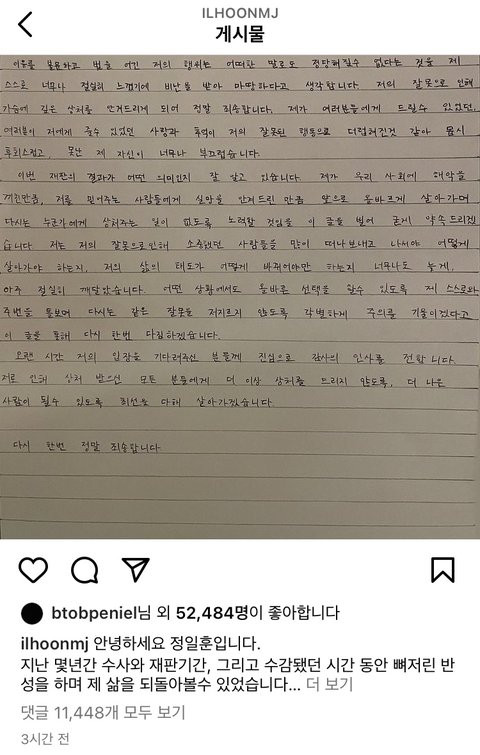 ILHOONMJ
게시물
이유를 불문하고 법을 어긴 저의 행위는 어떠한 말로도 정당해질수 없다는 것을 제
스스로 너무나 절실히 느꼈기에 비난을 받아 마땅하다고 생각합니다. 저의 잘못으로 인해
가슴에 깊은 상처를 안겨드리게 되어 정말 죄송합니다. 제가 여러분들에게 드릴수 있었던,
여러분이 저에게 줄수 있었던 사랑과 추억이 저의 잘못된 행동으로 더럽혀진것 같아 몹시
후회스럽고, 못난 제 자신이 너무나 부끄럽습니다.
이번 재판의 결과가 어떤 의미인지 잘 알고 있습니다. 제가 우리 사회에 해악을
끼친만큼, 저를 믿어주는 사람들에게 실망을 안겨드린 만큼 앞으로 올바르게 살아가며
다시는 누군가에게 상처주는 일이 없도록 노력할 것임을 이 글을 빌어 굳게 약속드리겠
습니다. 저는 저의 잘못으로인해 소중했던 사람들을 많이 떠나보내고 나서야 어떻게
살아가야 하는지, 저의 삶의 태도가 어떻게 바뀌어야만 하는지 너무나도 늦게,
아주 절실히 깨달았습니다. 어떤 상황에서도 올바른 선택을 할수 있도록 제 스스로와
주변을 돌보며 다시는 같은 잘못을 저지르지 않도록 각별하게 주의를 기울이겠다고
이 글을 통해 다시 한번 다짐하겠습니다.
오랜 시간 저의 입장을 기다려주신 분들께 진심으로 감사의 인사를 전합니다.
저로 인해 상처 받으신 모든 분들에게 더 이상 상처를 드리지 않도록, 더 나은
사람이 될수 있도록 최선을 다해 살아가겠습니다.
다시 한번 정말 죄송합니다
btobpeniel님 외 52,484명이 좋아합니다
ilhoonmj 안녕하세요 정일훈입니다.
지난 몇년간 수사와 재판기간, 그리고 수감됐던 시간 동안 뼈저린 반
성을 하며 제 삶을 되돌아볼수 있었습니다... 더 보기
댓글 11,448개 모두 보기
3시간 전